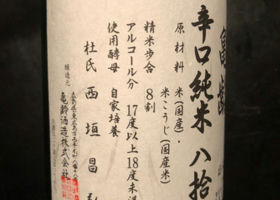 亀齢
辛口純米 八拾
原材料 米(国産)・
米こうじ(国産米)
精米歩合 8割
アルコール分 17度以上18度未満
使用酵母 自家培養
杜氏 西垣昌弘
醸造元
亀齢酒造株式会社